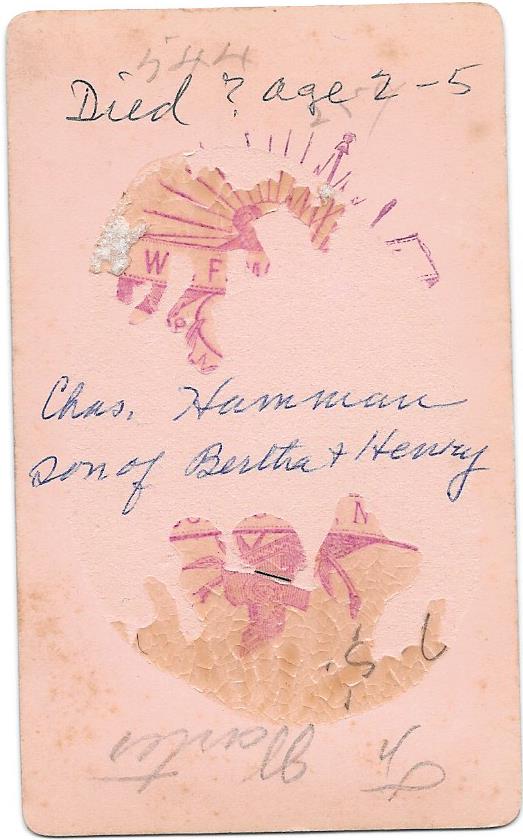 544
Died ? age 2-5
W F
Chas. Hamman
son of Bertha + Henry
N